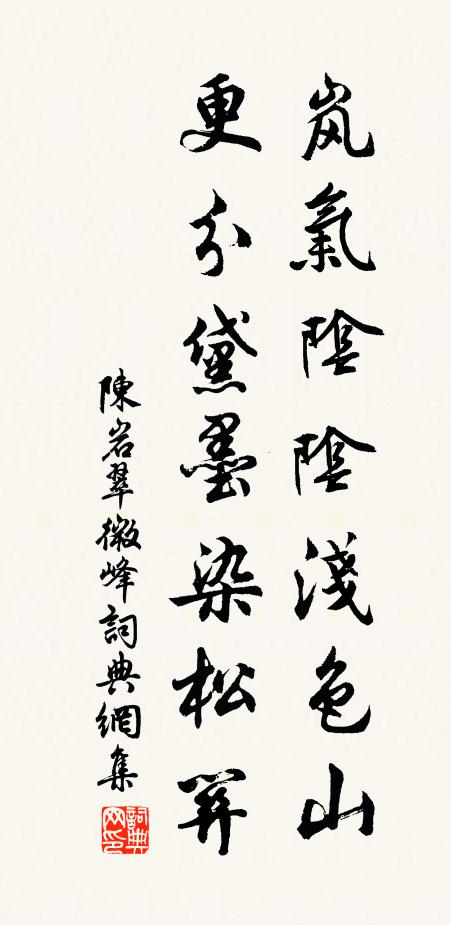 岚氣陰陰淺色山
更分黛墨染松關
陳岩翠微峰詞典網集
詞典
网印